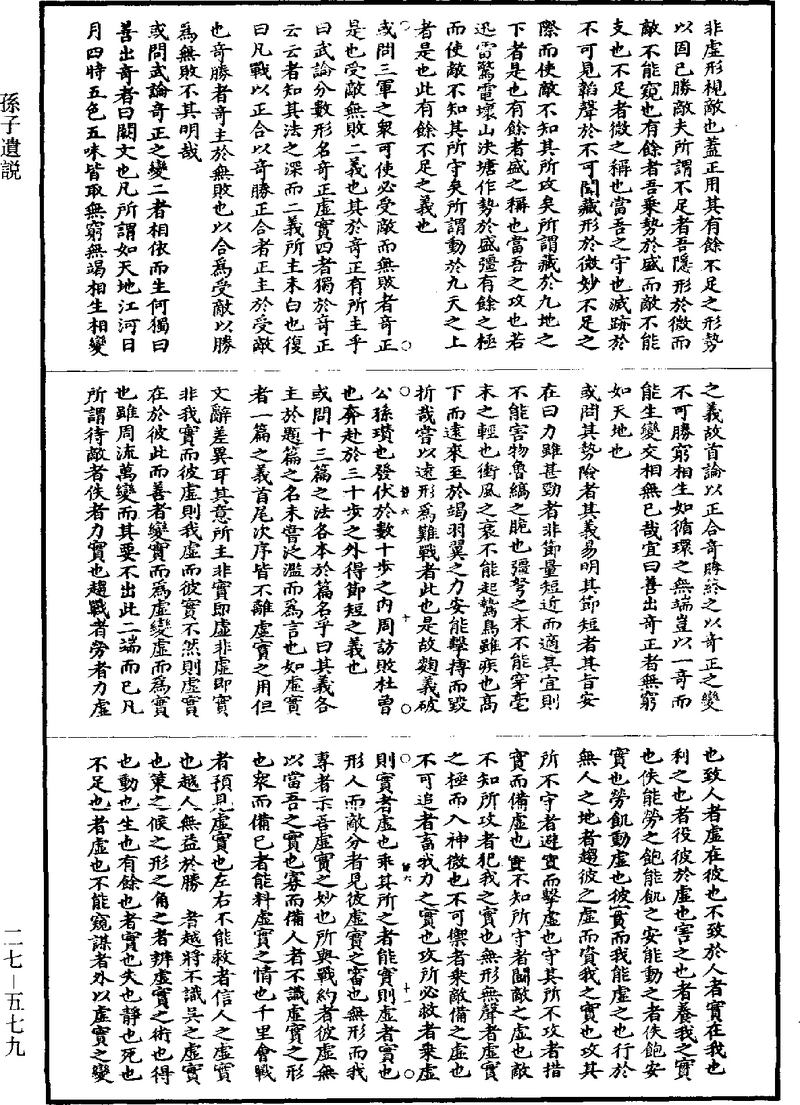 非虛形視敵也蓋正用其有餘不足之形勢
以固己勝敵夫所謂不足者吾隱形於微而
敵不能窺也有餘者吾乘勢於盛而敵不能
支也不足者微之稱也當吾之守也滅跡於
不可見韜聲於不可聞藏形於微妙不足之
際而使敵不知其所攻矣所謂藏於九地之
下者是也有餘者盛之稱也當吾之攻也若
迅雷驚電壞山決塘作勢於盛彊有餘之極
而使敵不知其所守矣所謂動於九天之上
者是也此有餘不足之義也
或問三軍之眾可使必受敵而無敗者奇正
是也受敵無敗二義也其於奇正有所主乎
曰武論分數形名奇正虛實四者獨於奇正
云云者知其法之深而二義所主未白也復
曰凡戰以正合以奇勝正合者正主於受敵
也奇勝者奇主於無敗也以合為受敵以勝
為無敗不其明哉
或問武論奇正之變二者相依而生何獨曰
善出奇者曰闕文也凡所謂如天地江河日
月四時五色五味皆取無窮無竭相生相變
之義故首論以正合奇勝終之以奇正之變
不可勝窮相生如循環之無端豈以一奇而
能生變交相無已哉宜曰善出奇正者無窮
如天地也
或問其勢險者其義易明其節短者其旨安
在曰力雖甚勁者非節量短近而適其宜則
不能害物魯縞之脆也彊弩之末不能穿毫
末之輕也衝風之衰不能起鷙鳥雖疾也高
下而遠來至於竭羽翼之力安能擊搏而毀
折哉嘗以遠形為難戰者此也是故麴義破
公孫瓚也發伏於數十步之內周訪敗杜曾
也奔赴於三十步之外得節短之義也
或問十三篇之法各本於篇名乎曰其義各
主於題篇之名未嘗泛濫而為言也如虛實
者一篇之義首尾次序皆不離虛實之用但
文辭差異耳其意所主非實即虛非虛即實
非我實而彼虛則我虛而彼實不然則虛實
在於彼此而善者變實而為虛變虛而為實
也雖周流萬變而其要不出此二端而已凡
所謂待敵者佚者力實也趨戰者勞者力虛
也致人者虛在彼也不致於人者實在我也
利之也者役彼於虛也害之也者養我之實
也佚能勞之飽能飢之安能動之者佚飽安
實也勞飢動虛也彼實而我能虛之也行於
無人之地者趨彼之虛而資我之實也攻其
所不守者避實而擊虛也守其所不攻者措
實而備虛也實不知所守者闕敵之虛也敵
不知所攻者犯我之實也無形無聲者虛實
之極而入神微也不可禦者乘敵備之虛也
不可追者畜我力之實也攻所必救者乘虛
則實者虛也乖其所之者能實則虛者實也
形人而敵分者見彼虛實之審也無形而我
專者示吾虛實之妙也所與戰約者彼虛無
以當吾之實也寡而備人者不識虛實之形
也眾而備己者能料虛實之情也千里會戰
者預見虛實也左右不能救者信人之虛實
也越人無益於勝 者越將不識吳之虛實
也策之候之形之角之者辨虛實之術也得
也動也生也有餘也者實也失也靜也死也
不足也者虛也不能窺謀者外以虛實之變
孫子遺說
二七—五七九